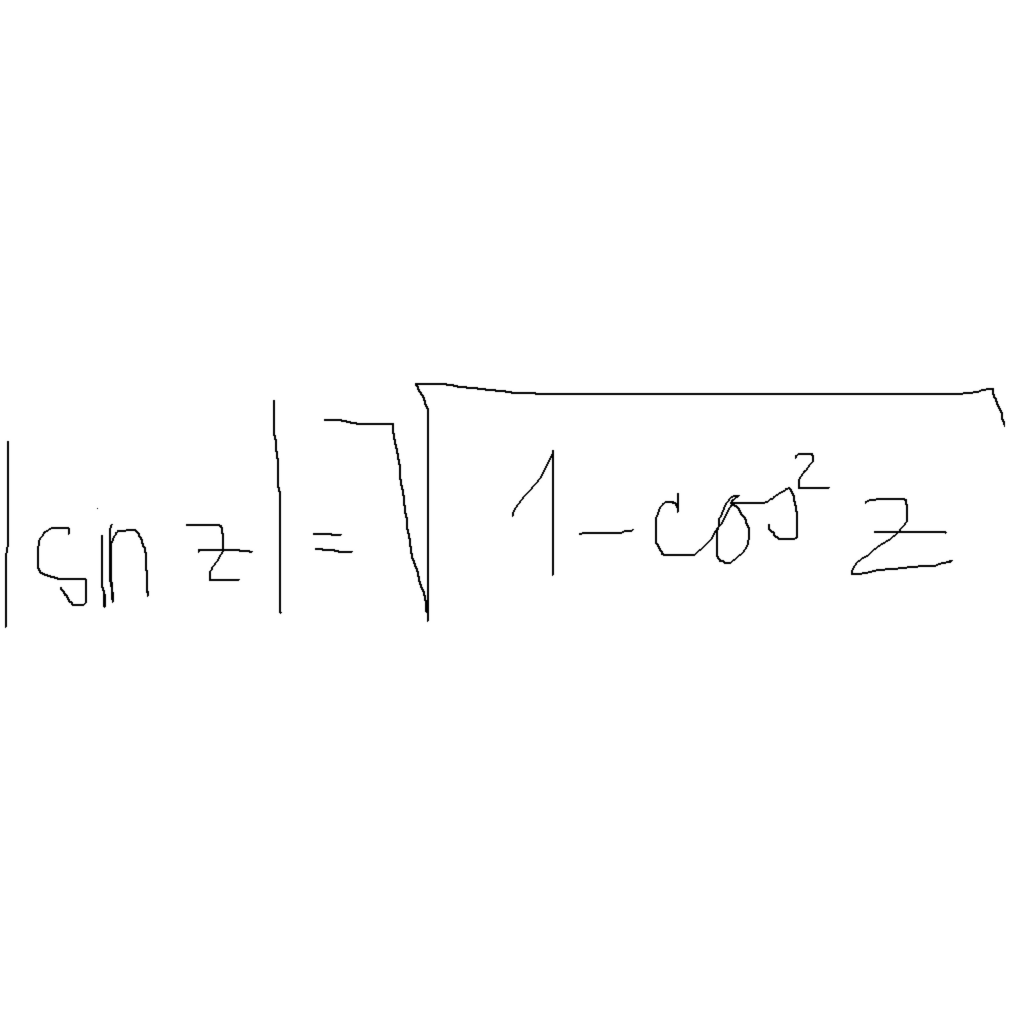 |sin z| = √(1 - cos² z)